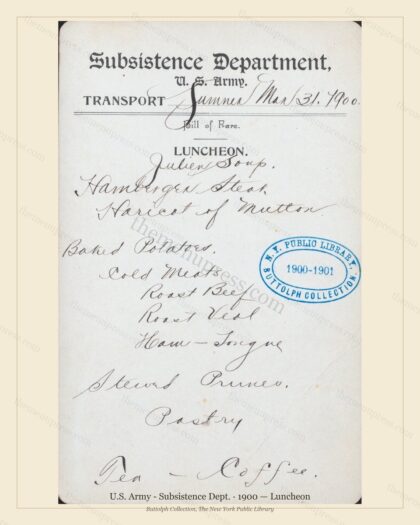 Subsistence Department,
U. S. Army.
TRANSPORT Sumner Mar 31. 1900.
Bill of Fare.
LUNCHEON.
Julien Soup.
Hamburger Steak
Haricot of Mutton
Baked Potatoes.
Cold Meats
Roast Beef
Roast Veal
Ham - Tongue
N. Y. PUBLIC LIBRARY.
1900-1901
BUTTOLPH COLLECTION.
Stewed Prunes.
Pastry
Tea - Coffee.
U.S. Army - Subsistence Dept. - 1900 — Luncheon
Buttolph Collection, The New York Public Library
themenupress.com